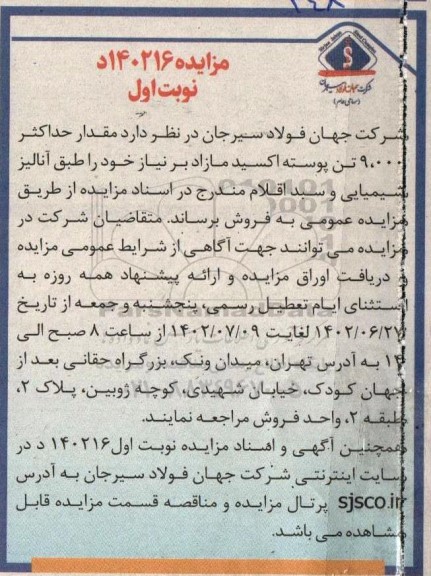 مزایده ۱۴۰۲۱۶د
نوبت اول
شرکت جهان فولاد سیرجان در نظر دارد مقدار حداکثر
۹،۰۰۰ تن پوسته اکسید مازاد بر نیاز خود را طبق آنالیز
شیمیایی و سایر اقلام مندرج در اسناد مزایده از طریق
مزایده عمومی به فروش برساند. متقاضیان شرکت در
مزایده می توانند جهت آگاهی از شرایط عمومی مزایده
و دریافت اوراق مزایده و ارائه پیشنهاد همه روزه به
استثنای ایام تعطیل رسمی، پنجشنبه و جمعه از تاریخ
۱۴۰۲/۰۶/۲۷ لغایت ۱۴۰۲/۰۷/۰۹ از ساعت ۸ صبح الی
۱۴ به آدرس تهران، میدان ونک، بزرگراه حقانی بعد از
جهان کودک، خیابان شهیدی، کوچه ژوبین، پلاک ۲،
طبقه ۲، واحد فروش مراجعه نمایند.
همچنین آگهی و اسناد مزایده نوبت اول ۱۴۰۲۱۶ د در
سایت اینترنتی شرکت جهان فولاد سیرجان به آدرس
sjsco.ir پرتال مزایده و مناقصه قسمت مزایده قابل
مشاهده می باشد.